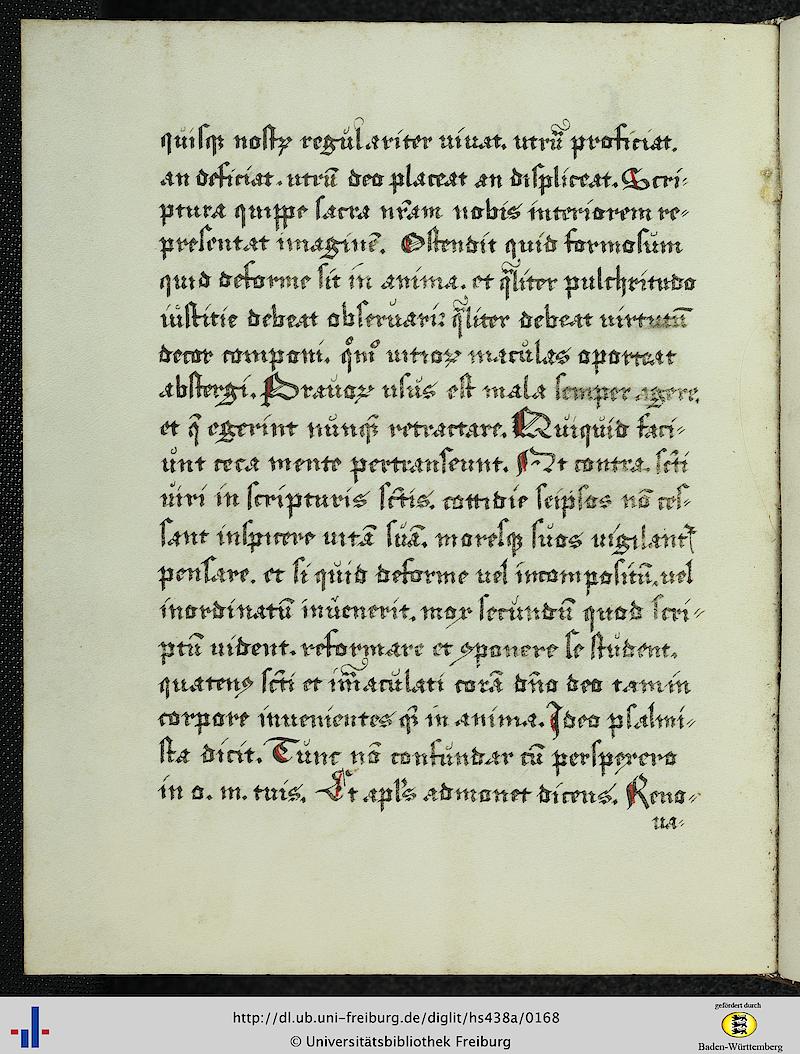 quisqꝫ nostꝝ regulariter uiuat. utrũ proficiat.
an deficiat. utrũ deo placeat an displiceat. Scri⸗
ptura quippe sacra nr̃am nobis interiorem re⸗
presentat imaginẽ. Ostendit quid formosum
quid deforme sit in anima. et qͣliter pulchritudo
iustitie debeat obseruari: qͣliter debeat uirtutũ
decor componi. qͦmͦ uitioꝝ maculas oporteat
abstergi. Prauoꝝ usus est mala semper agere.
et q̃ egerint nunqꝫ retractare. Quiquid faci⸗
unt ceca mente pertranseunt. At contra. sc̃ti
uiri in scripturis sc̃tis. cottidie seipsos nõ ces⸗
sant inspicere uitã suã. moresqꝫ suos uigilantʳ
pensare. et si quid deforme uel incompositũ. uel
inordinatũ inuenerit. mox secundũ quod scri⸗
ptũ uident. reformare et ꝯponere se student.
quatenꝰ sc̃ti et im̃aculati corã dño deo tam in
corpore inuenientes qꝫ in anima. Ideo psalmi⸗
sta dicit. Tunc nõ confundar cũ perspexero
in o. m. tuis. Et apl̃s admonet dicens. Reno⸗
ua⸗
http://dl.ub.uni-freiburg.de/diglit/hs438a/0168
© Universitätsbibliothek Freiburg
gefördert durch
Baden-Württemberg